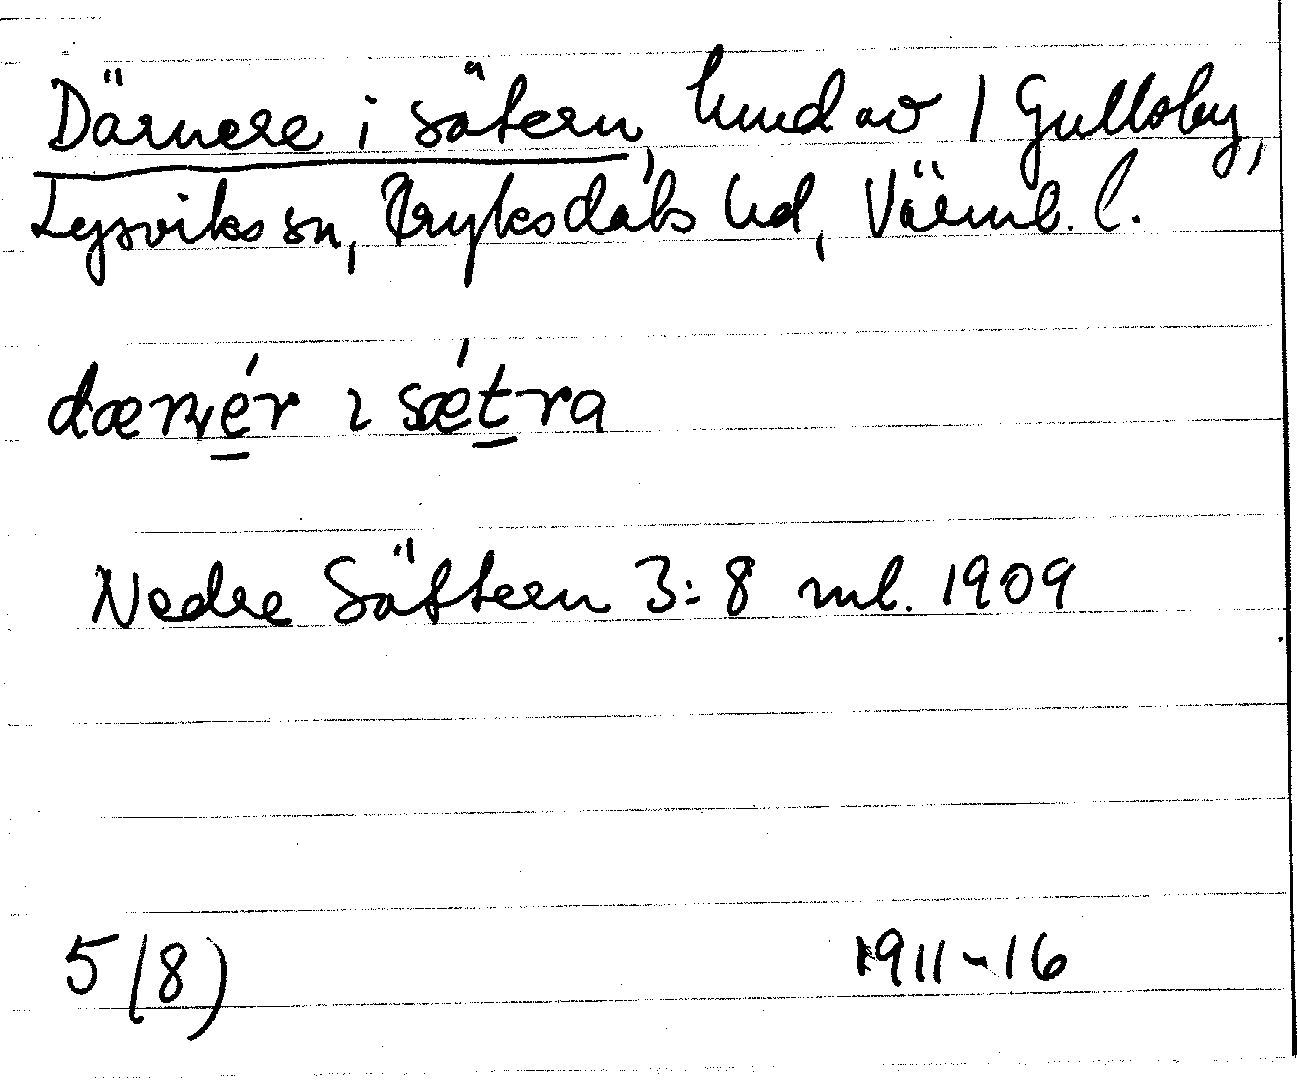 Därnere i sätern, hmd av 1 Gullsby,
Lysviks sn, Fryksdals hd, Värml. l.
dærnér ı sǽtra
Nedre Sättern 3:8 ml. 1909
5 (8) 1911-16